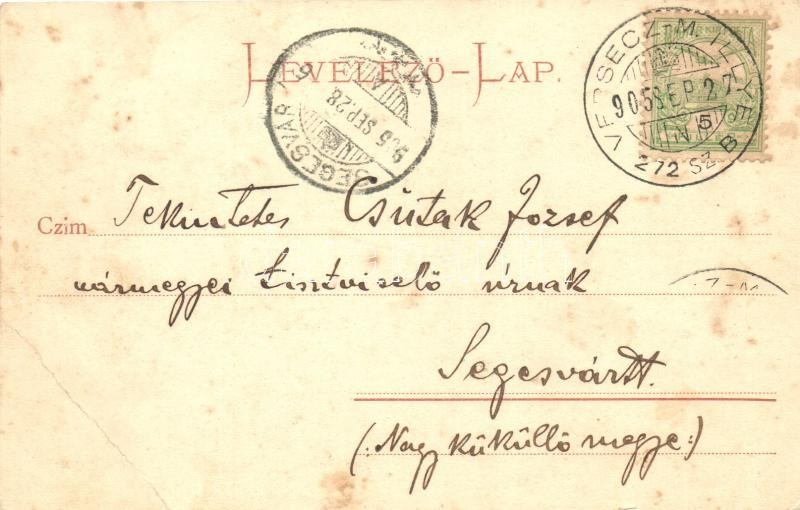 LEVELEZŐ-LAP.
SEGESVÁR
905 SEP. 28.
VERSECZ-M. ILLYE
905 SEP 27
N 5
272 SZ B
Czim Tekintetes Csutak József
vármegyei tisztviselő úrnak
Segesvártt.
(: Nagy küküllő megye :)